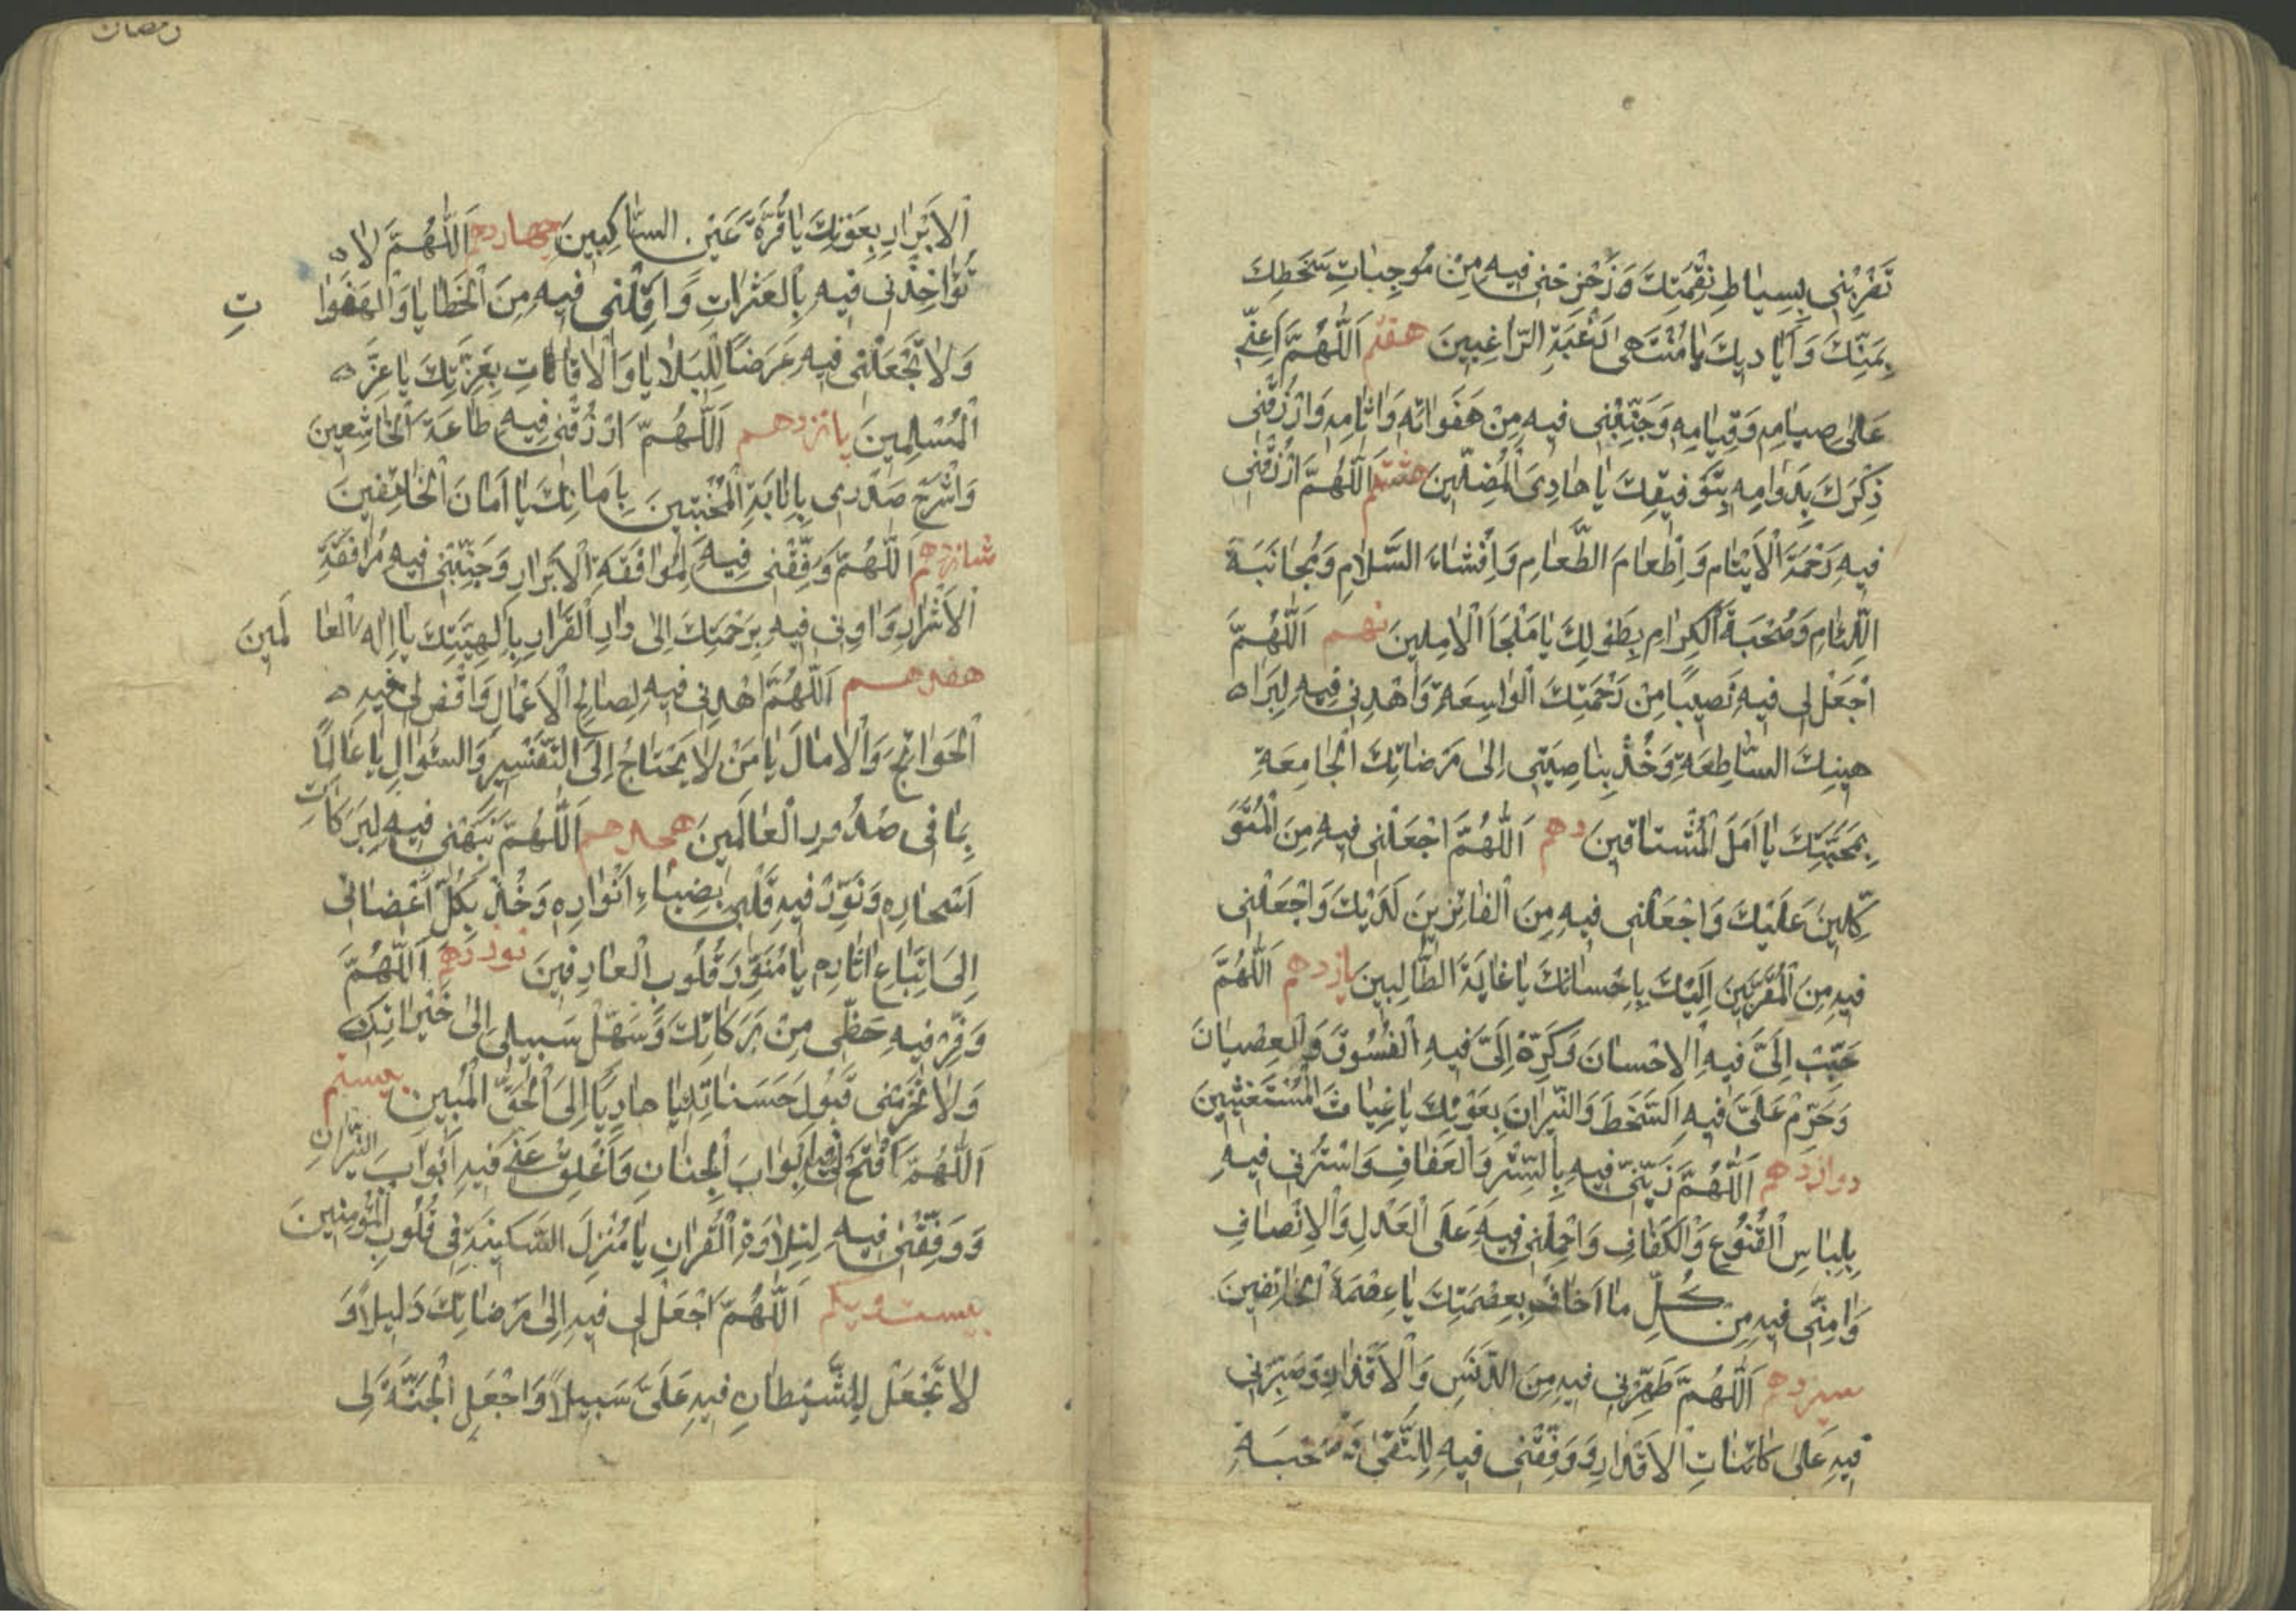 تَضْرِبْنِي بِسِيَاطِ نِقْمَتِكَ وَزَحْزِحْنِي فِيهِ مِنْ مُوجِبَاتِ سَخَطِكَ
بِمَنِّكَ وَاَيَادِيكَ يَا مُنْتَهَى رَغْبَةِ الرَّاغِبِينَ هفتم اَللّٰهُمَّ اَعِنِّي
عَلٰى صِيَامِهِ وَقِيَامِهِ وَجَنِّبْنِي فِيهِ مِنْ هَفَوَاتِهِ وَاٰثَامِهِ وَارْزُقْنِي
ذِكْرَكَ بِدَوَامِهِ بِتَوْفِيقِكَ يَا هَادِيَ الْمُضِلِّينَ هشتم اَللّٰهُمَّ ارْزُقْنِي
فِيهِ رَحْمَةَ الْاَيْتَامِ وَاِطْعَامَ الطَّعَامِ وَاِفْشَاءَ السَّلَامِ وَمُجَانَبَةَ
اللِّئَامِ وَصُحْبَةَ الْكِرَامِ بِطَوْلِكَ يَا مَلْجَاَ الْاٰمِلِينَ نهم اَللّٰهُمَّ
اجْعَلْ لِي فِيهِ نَصِيبًا مِنْ رَحْمَتِكَ الْوَاسِعَةِ وَاهْدِنِي فِيهِ لِبَرَا
هِينِكَ السَّاطِعَةِ وَخُذْ بِنَاصِيَتِي اِلٰى مَرْضَاتِكَ الْجَامِعَةِ
بِمَحَبَّتِكَ يَا اَمَلَ الْمُشْتَاقِينَ دهم اَللّٰهُمَّ اجْعَلْنِي فِيهِ مِنَ الْمُتَوَ
كِّلِينَ عَلَيْكَ وَاجْعَلْنِي فِيهِ مِنَ الْفَائِزِينَ لَدَيْكَ وَاجْعَلْنِي
فِيهِ مِنَ الْمُقَرَّبِينَ اِلَيْكَ بِاِحْسَانِكَ يَا غَايَةَ الطَّالِبِينَ يازدهم اَللّٰهُمَّ
حَبِّبْ اِلَيَّ فِيهِ الْاِحْسَانَ وَكَرِّهْ اِلَيَّ فِيهِ الْفُسُوقَ وَالْعِصْيَانَ
وَحَرِّمْ عَلَيَّ فِيهِ السَّخَطَ وَالنِّيرَانَ بِعَوْنِكَ يَا غِيَاثَ الْمُسْتَغِيثِينَ
دوازدهم اَللّٰهُمَّ زَيِّنِّي فِيهِ بِالسِّتْرِ وَالْعَفَافِ وَاسْتُرْنِي فِيهِ
بِلِبَاسِ الْقُنُوعِ وَالْكَفَافِ وَاحْمِلْنِي فِيهِ عَلَى الْعَدْلِ وَالْاِنْصَافِ
وَاٰمِنِّي فِيهِ مِنْ كُلِّ مَا اَخَافُ بِعِصْمَتِكَ يَا عِصْمَةَ الْخَائِفِينَ
سیزدهم اَللّٰهُمَّ طَهِّرْنِي فِيهِ مِنَ الدَّنَسِ وَالْاَقْذَارِ وَصَبِّرْنِي
فِيهِ عَلٰى كَائِنَاتِ الْاَقْدَارِ وَوَفِّقْنِي فِيهِ لِلتُّقٰى وَصُحْبَةِ
رمضان
الْاَبْرَارِ بِعَوْنِكَ يَا قُرَّةَ عَيْنِ السَّاكِينَ چهاردهم اَللّٰهُمَّ لَا
تُؤَاخِذْنِي فِيهِ بِالْعَثَرَاتِ وَاَقِلْنِي فِيهِ مِنَ الْخَطَايَا وَالْهَفَوَا تِ
وَلَا تَجْعَلْنِي فِيهِ غَرَضًا لِلْبَلَايَا وَالْاٰفَاتِ بِعِزَّتِكَ يَا عِزَّ
الْمُسْلِمِينَ پانزدهم اَللّٰهُمَّ ارْزُقْنِي فِيهِ طَاعَةَ الْخَاشِعِينَ
وَاشْرَحْ صَدْرِي بِاِنَابَةِ الْمُخْبِتِينَ بِاَمَانِكَ يَا اَمَانَ الْخَائِفِينَ
شانزدهم اَللّٰهُمَّ وَفِّقْنِي فِيهِ لِمُوَافَقَةِ الْاَبْرَارِ وَجَنِّبْنِي فِيهِ مُرَافَقَةَ
الْاَشْرَارِ وَاٰوِنِي فِيهِ بِرَحْمَتِكَ اِلٰى دَارِ الْقَرَارِ بِاِلٰهِيَّتِكَ يَا اِلٰهَ الْعَا لَمِينَ
هفدهم اَللّٰهُمَّ اهْدِنِي فِيهِ لِصَالِحِ الْاَعْمَالِ وَاقْضِ لِي فِيهِ
الْحَوَائِجَ وَالْاٰمَالَ يَا مَنْ لَا يَحْتَاجُ اِلَى التَّفْسِيرِ وَالسُّؤَالِ يَا عَالِمًا
بِمَا فِي صُدُورِ الْعَالَمِينَ هجدهم اَللّٰهُمَّ نَبِّهْنِي فِيهِ لِبَرَكَاتِ
اَسْحَارِهِ وَنَوِّرْ فِيهِ قَلْبِي بِضِيَاءِ اَنْوَارِهِ وَخُذْ بِكُلِّ اَعْضَائِي
اِلَى اتِّبَاعِ اٰثَارِهِ يَا مُنَوِّرَ قُلُوبِ الْعَارِفِينَ نوزدهم اَللّٰهُمَّ
وَفِّرْ فِيهِ حَظِّي مِنْ بَرَكَاتِكَ وَسَهِّلْ سَبِيلِي اِلٰى خَيْرَاتِكَ
وَلَا تَحْرِمْنِي قَبُولَ حَسَنَاتِكَ يَا هَادِيًا اِلَى الْحَقِّ الْمُبِينِ بیستم
اَللّٰهُمَّ افْتَحْ لِي فِيهِ اَبْوَابَ الْجِنَانِ وَاَغْلِقْ عَنِّي فِيهِ اَبْوَابَ النِّيرَانِ
وَوَفِّقْنِي فِيهِ لِتِلَاوَةِ الْقُرْاٰنِ يَا مُنْزِلَ السَّكِينَةِ فِي قُلُوبِ الْمُؤْمِنِينَ
بیست و یکم اَللّٰهُمَّ اجْعَلْ لِي فِيهِ اِلٰى مَرْضَاتِكَ دَلِيلًا وَ
لَا تَجْعَلْ لِلشَّيْطَانِ فِيهِ عَلَيَّ سَبِيلًا وَاجْعَلِ الْجَنَّةَ لِي